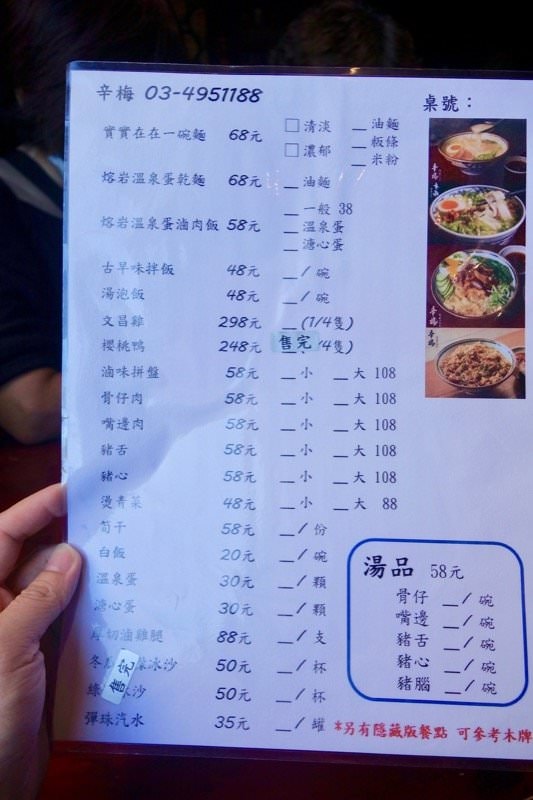 辛梅 03-4951188
桌號：
實實在在一碗麵 68元 □清淡 __油麵
__板條
□濃郁 __米粉
熔岩溫泉蛋乾麵 68元 __油麵
熔岩溫泉蛋滷肉飯 58元 __一般 38
__溫泉蛋
__溏心蛋
古早味拌飯 48元 __/碗
湯泡飯 48元 __/碗
文昌雞 298元 __(1/4隻)
櫻桃鴨 248元 售完 /4隻)
滷味拼盤 58元 __小 __大 108
骨仔肉 58元 __小 __大 108
嘴邊肉 58元 __小 __大 108
豬舌 58元 __小 __大 108
豬心 58元 __小 __大 108
燙青菜 48元 __小 __大 88
筍干 58元 __/份
白飯 20元 __/碗
溫泉蛋 30元 __/顆
溏心蛋 30元 __/顆
切滷雞腿 88元 __/支
冬 冰沙 50元 __/杯
售完
綠 冰沙 50元 __/杯
彈珠汽水 35元 __/罐
湯品 58元
骨仔 __/碗
嘴邊 __/碗
豬舌 __/碗
豬心 __/碗
豬腦 __/碗
*另有隱藏版餐點 可參考木牌